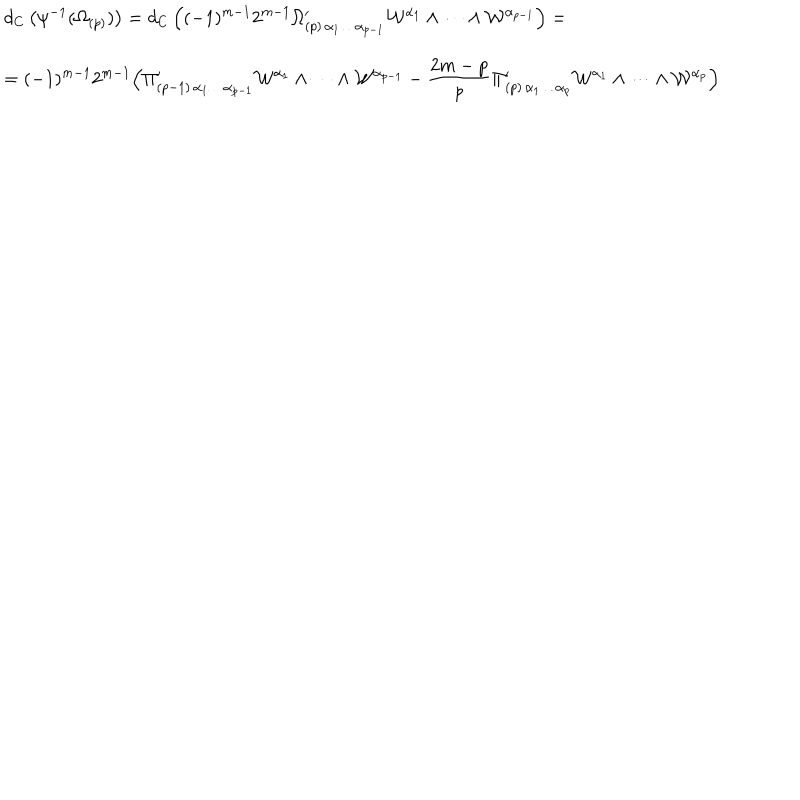 d_C (ψ^{-1}(Ω_{(p)})) = d_C ((-1)^{m-1} 2^{m-1} Ω'_{(p) α_1…α_{p-1}} W^{α_1} ∧ ⋯ ∧ W^{α_{p-1}}) =
= (-1)^{m-1} 2^{m-1} (Π'_{(p-1) α_1…α_{p-1}} W^{α_1} ∧ ⋯ ∧ W^{α_{p-1}} − \frac{2m-p}{p} Π'_{(p) α_1…α_p} W^{α_1} ∧ ⋯ ∧ W^{α_p})